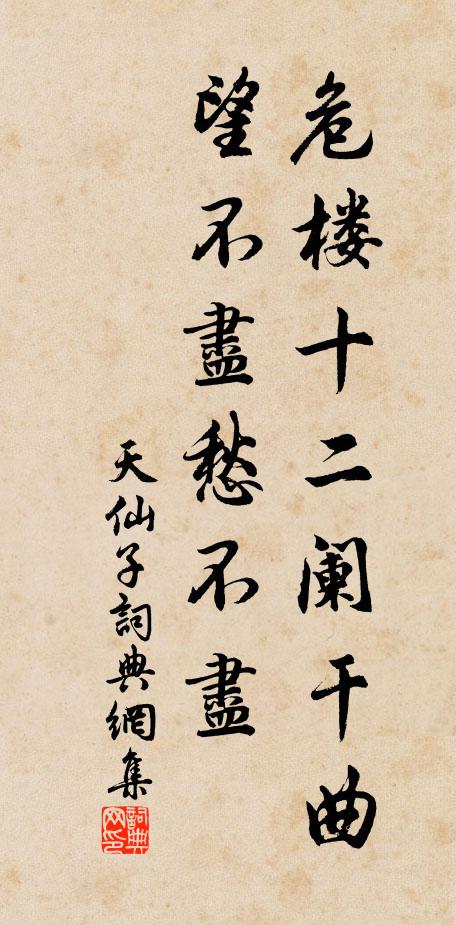 危楼十二阑干曲
望不盡愁不盡
天仙子詞典網集
詞典网印